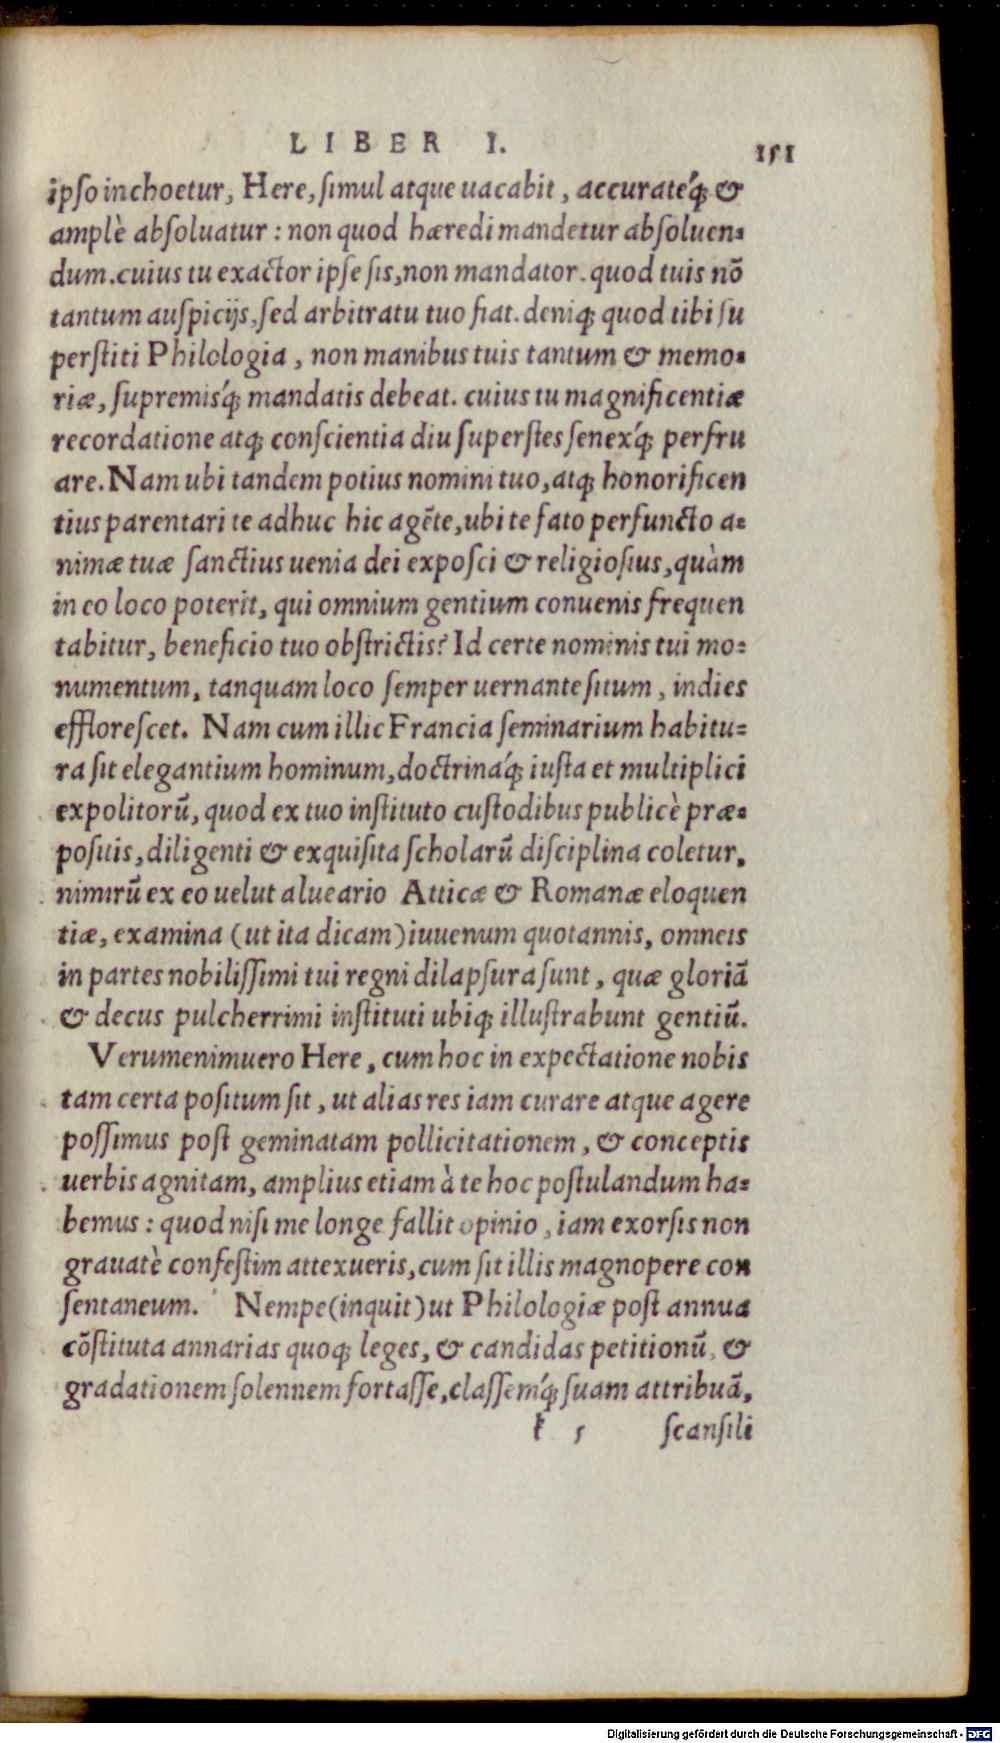 LIBER I. 151
ipso inchoetur, Here, simul atque uacabit, accurateq́; &
amplè absoluatur: non quod hæredi mandetur absoluen=
dum. cuius tu exactor ipse sis, non mandator. quod tuis nō
tantum auspicijs, sed arbitratu tuo fiat. deniq; quod tibi su
perstiti Philologia, non manibus tuis tantum & memo=
riæ, supremisq́; mandatis debeat. cuius tu magnificentiæ
recordatione atq; conscientia diu superstes senexq́; perfru
are. Nam ubi tandem potius nomini tuo, atq; honorificen
tius parentari te adhuc hic agēte, ubi te fato perfuncto a=
nimæ tuæ sanctius uenia dei exposci & religiosius, quàm
in eo loco poterit, qui omnium gentium conuenis frequen
tabitur, beneficio tuo obstrictis? Id certe nominis tui mo=
numentum, tanquam loco semper uernante situm, indies
efflorescet. Nam cum illic Francia seminarium habitu=
ra sit elegantium hominum, doctrinaq́; iusta et multiplici
expolitorū, quod ex tuo instituto custodibus publicè præ=
positis, diligenti & exquisita scholarū disciplina coletur,
nimirū ex eo uelut alueario Atticæ & Romanæ eloquen
tiæ, examina (ut ita dicam) iuuenum quotannis, omneis
in partes nobilissimi tui regni dilapsura sunt, quæ gloriā
& decus pulcherrimi instituti ubiq; illustrabunt gentiū.
Verumenimuero Here, cum hoc in expectatione nobis
tam certa positum sit, ut alias res iam curare atque agere
possimus post geminatam pollicitationem, & conceptis
uerbis agnitam, amplius etiam à te hoc postulandum ha=
bemus: quod nisi me longe fallit opinio, iam exorsis non
grauatè confestim attexueris, cum sit illis magnopere con
sentaneum. Nempe (inquit) ut Philologiæ post annua
cōstituta annarias quoq; leges, & candidas petitionū, &
gradationem solennem fortasse, classemq́; suam attribuā,
k 5 scansili
Digitalisierung gefördert durch die Deutsche Forschungsgemeinschaft - DFG